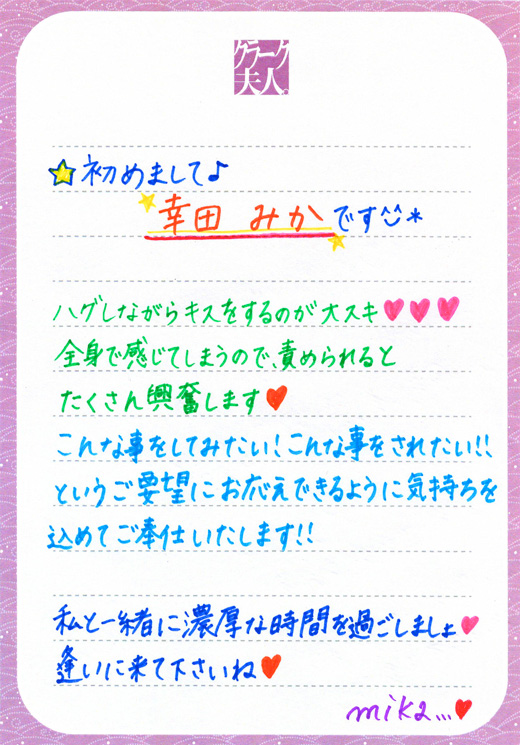 クラーク
夫人。
初めまして♪
幸田 みかです
ハグしながらキスをするのが大スキ♥♥♥
全身で感じてしまうので、責められると
たくさん興奮します♥
こんな事をしてみたい！こんな事をされたい！！
というご要望にお応えできるように気持ちを
込めてご奉仕いたします！！
私と一緒に濃厚な時間を過ごしましょ♥
逢いに来て下さいね♥
mika...♥